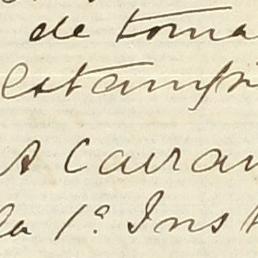 de toma
Estamp
A Cavan
la 1ª Inst